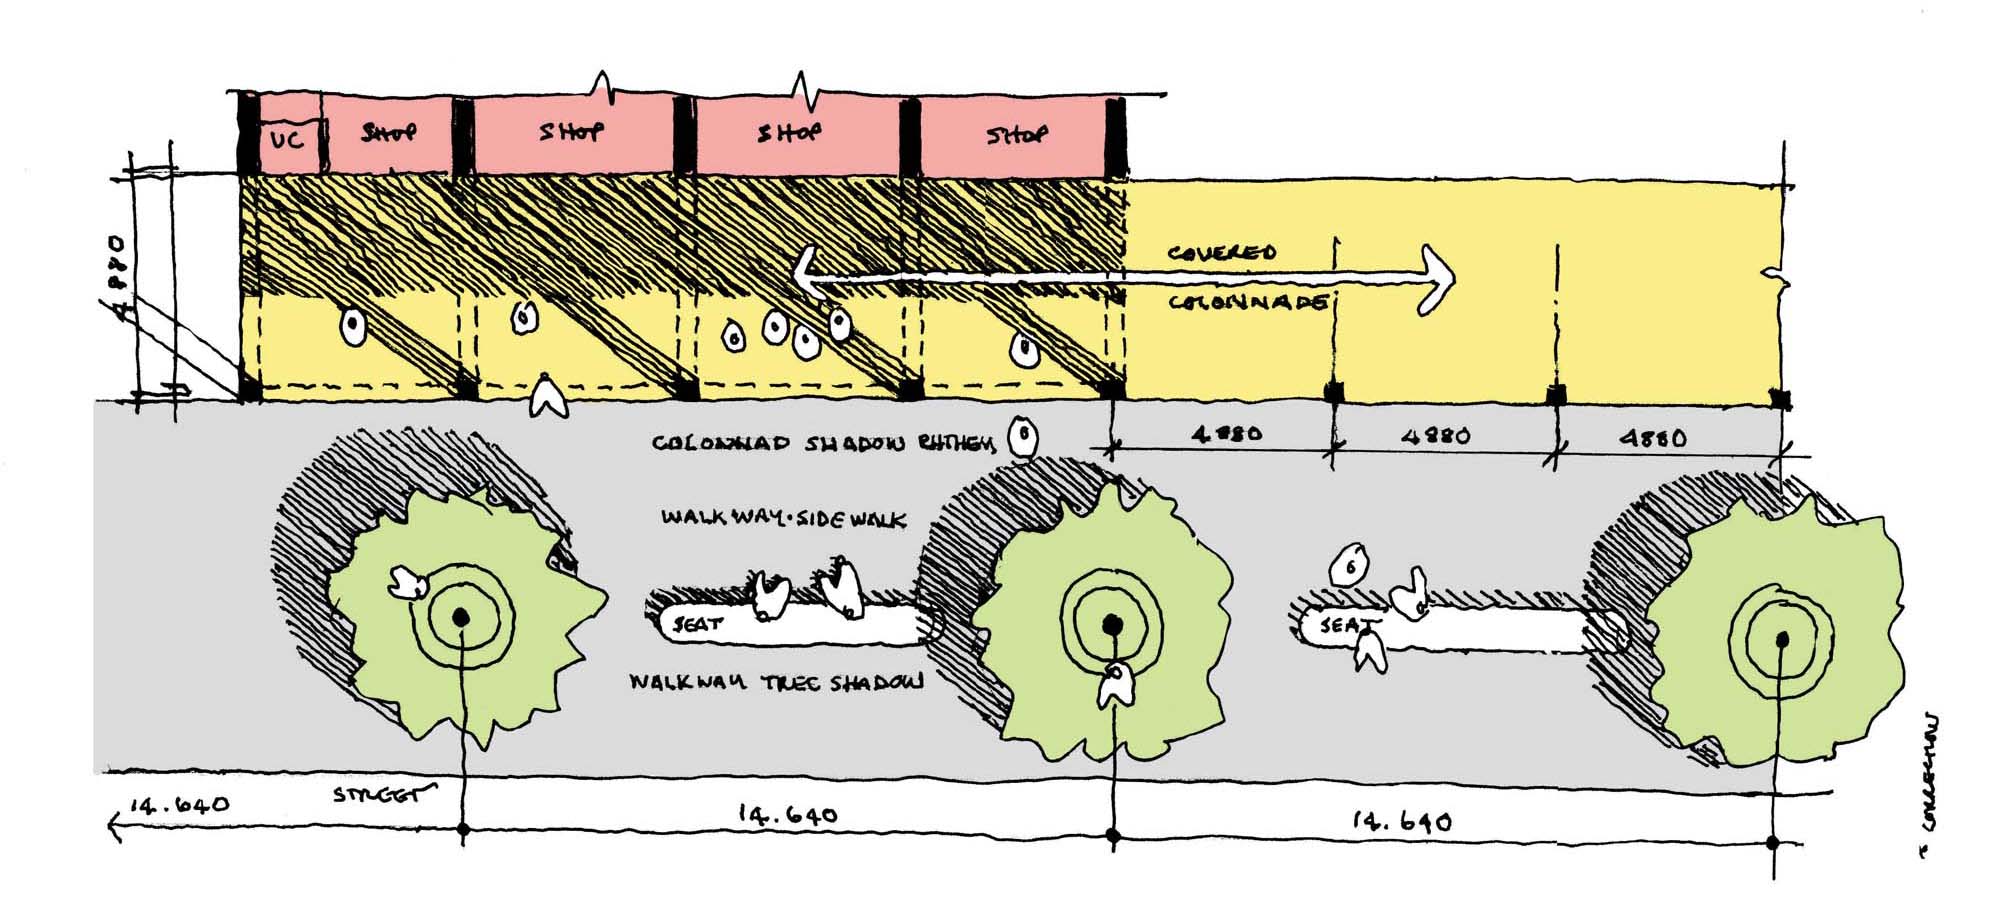 UC
SHOP
SHOP
SHOP
SHOP
4880
COVERED
COLONNADE
COLONNAD SHADOW RHTHEM
4880
4880
4880
WALKWAY·SIDEWALK
SEAT
SEAT
WALKWAY TREE SHADOW
STREET
14.640
14.640
14.640